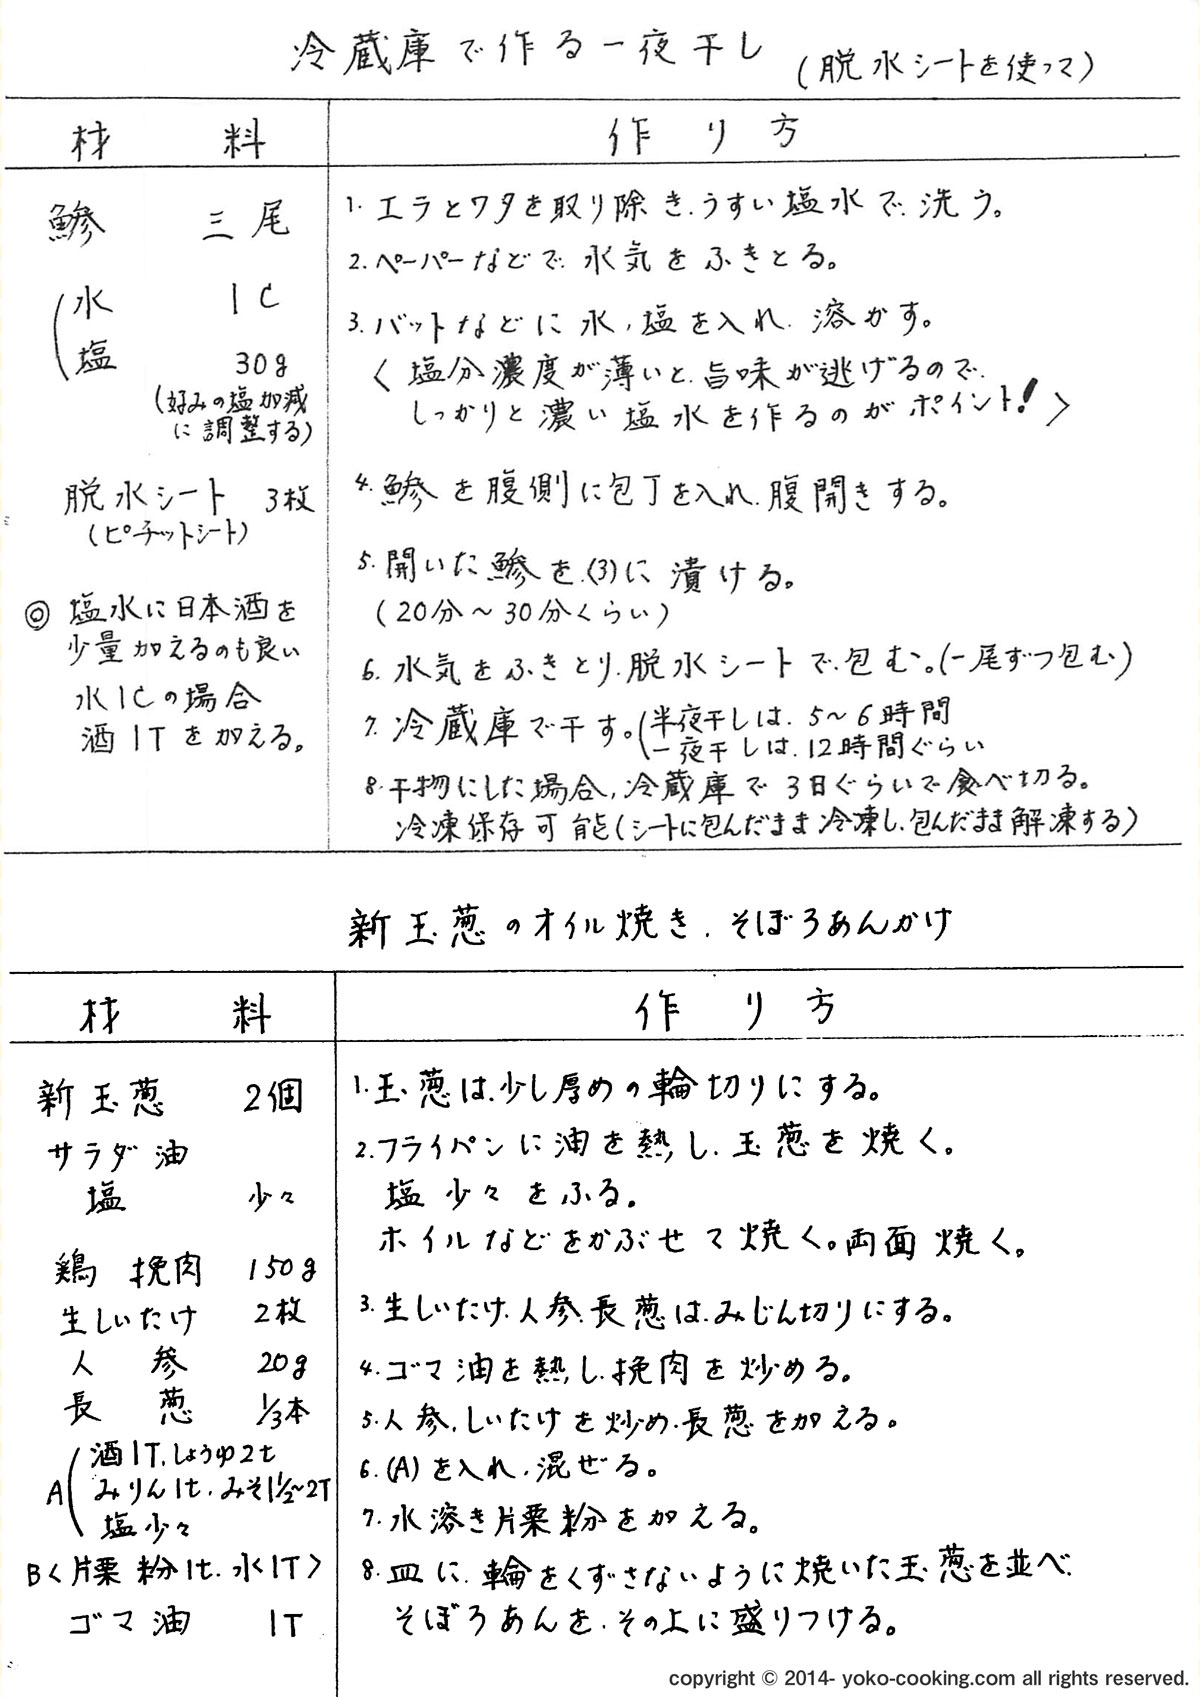 冷蔵庫で作る一夜干し (脱水シートを使って)
材 料
作り方
鯵 三尾
水 1C
塩 30g
(好みの塩加減
に調整する)
脱水シート 3枚
(ピチットシート)
◎ 塩水に日本酒を
少量加えるのも良い
水1Cの場合
酒1Tを加える。
1. エラとワタを取り除き、うすい塩水で、洗う。
2. ペーパーなどで、水気をふきとる。
3. バットなどに水、塩を入れ、溶かす。
〈塩分濃度が薄いと、旨味が逃げるので、
しっかりと濃い塩水を作るのがポイント!〉
4. 鯵を腹側に包丁を入れ、腹開きする。
5. 開いた鯵を、(3)に漬ける。
(20分～30分くらい)
6. 水気をふきとり、脱水シートで、包む。(一尾ずつ包む)
7. 冷蔵庫で干す。(半夜干しは、5～6時間
一夜干しは、12時間ぐらい
8. 干物にした場合、冷蔵庫で3日ぐらいで食べ切る。
冷凍保存可能(シートに包んだまま冷凍し、包んだまま解凍する)
新玉葱のオイル焼き、そぼろあんかけ
材 料
作り方
新玉葱 2個
サラダ油
塩 少々
鶏挽肉 150g
生しいたけ 2枚
人参 20g
長葱 1/3本
A(酒1T、しょうゆ2t
みりん1t、みそ1 1/2～2T
塩少々
B〈片栗粉1t、水1T〉
ゴマ油 1T
1. 玉葱は、少し厚めの輪切りにする。
2. フライパンに油を熱し、玉葱を焼く。
塩少々をふる。
ホイルなどをかぶせて焼く。両面焼く。
3. 生しいたけ、人参、長葱は、みじん切りにする。
4. ゴマ油を熱し、挽肉を炒める。
5. 人参、しいたけを炒め、長葱を加える。
6. (A)を入れ、混ぜる。
7. 水溶き片栗粉を加える。
8. 皿に、輪をくずさないように焼いた玉葱を並べ、
そぼろあんを、その上に盛りつける。
copyright © 2014- yoko-cooking.com all rights reserved.